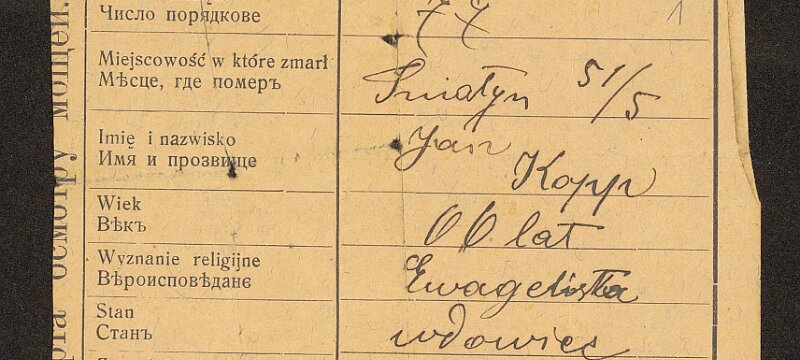 Число порядкове 77 1
Miejscowość w które zmarł
Мѣсце, где померъ Śniatyn 51/5
Imię i nazwisko Jan
Имя и прозвище Kopp
Wiek
Вѣкъ 66 lat
Wyznanie religijne
Вѣроисповѣданє Ewagelista
Stan
Станъ wdowiec
осмотру мощей.